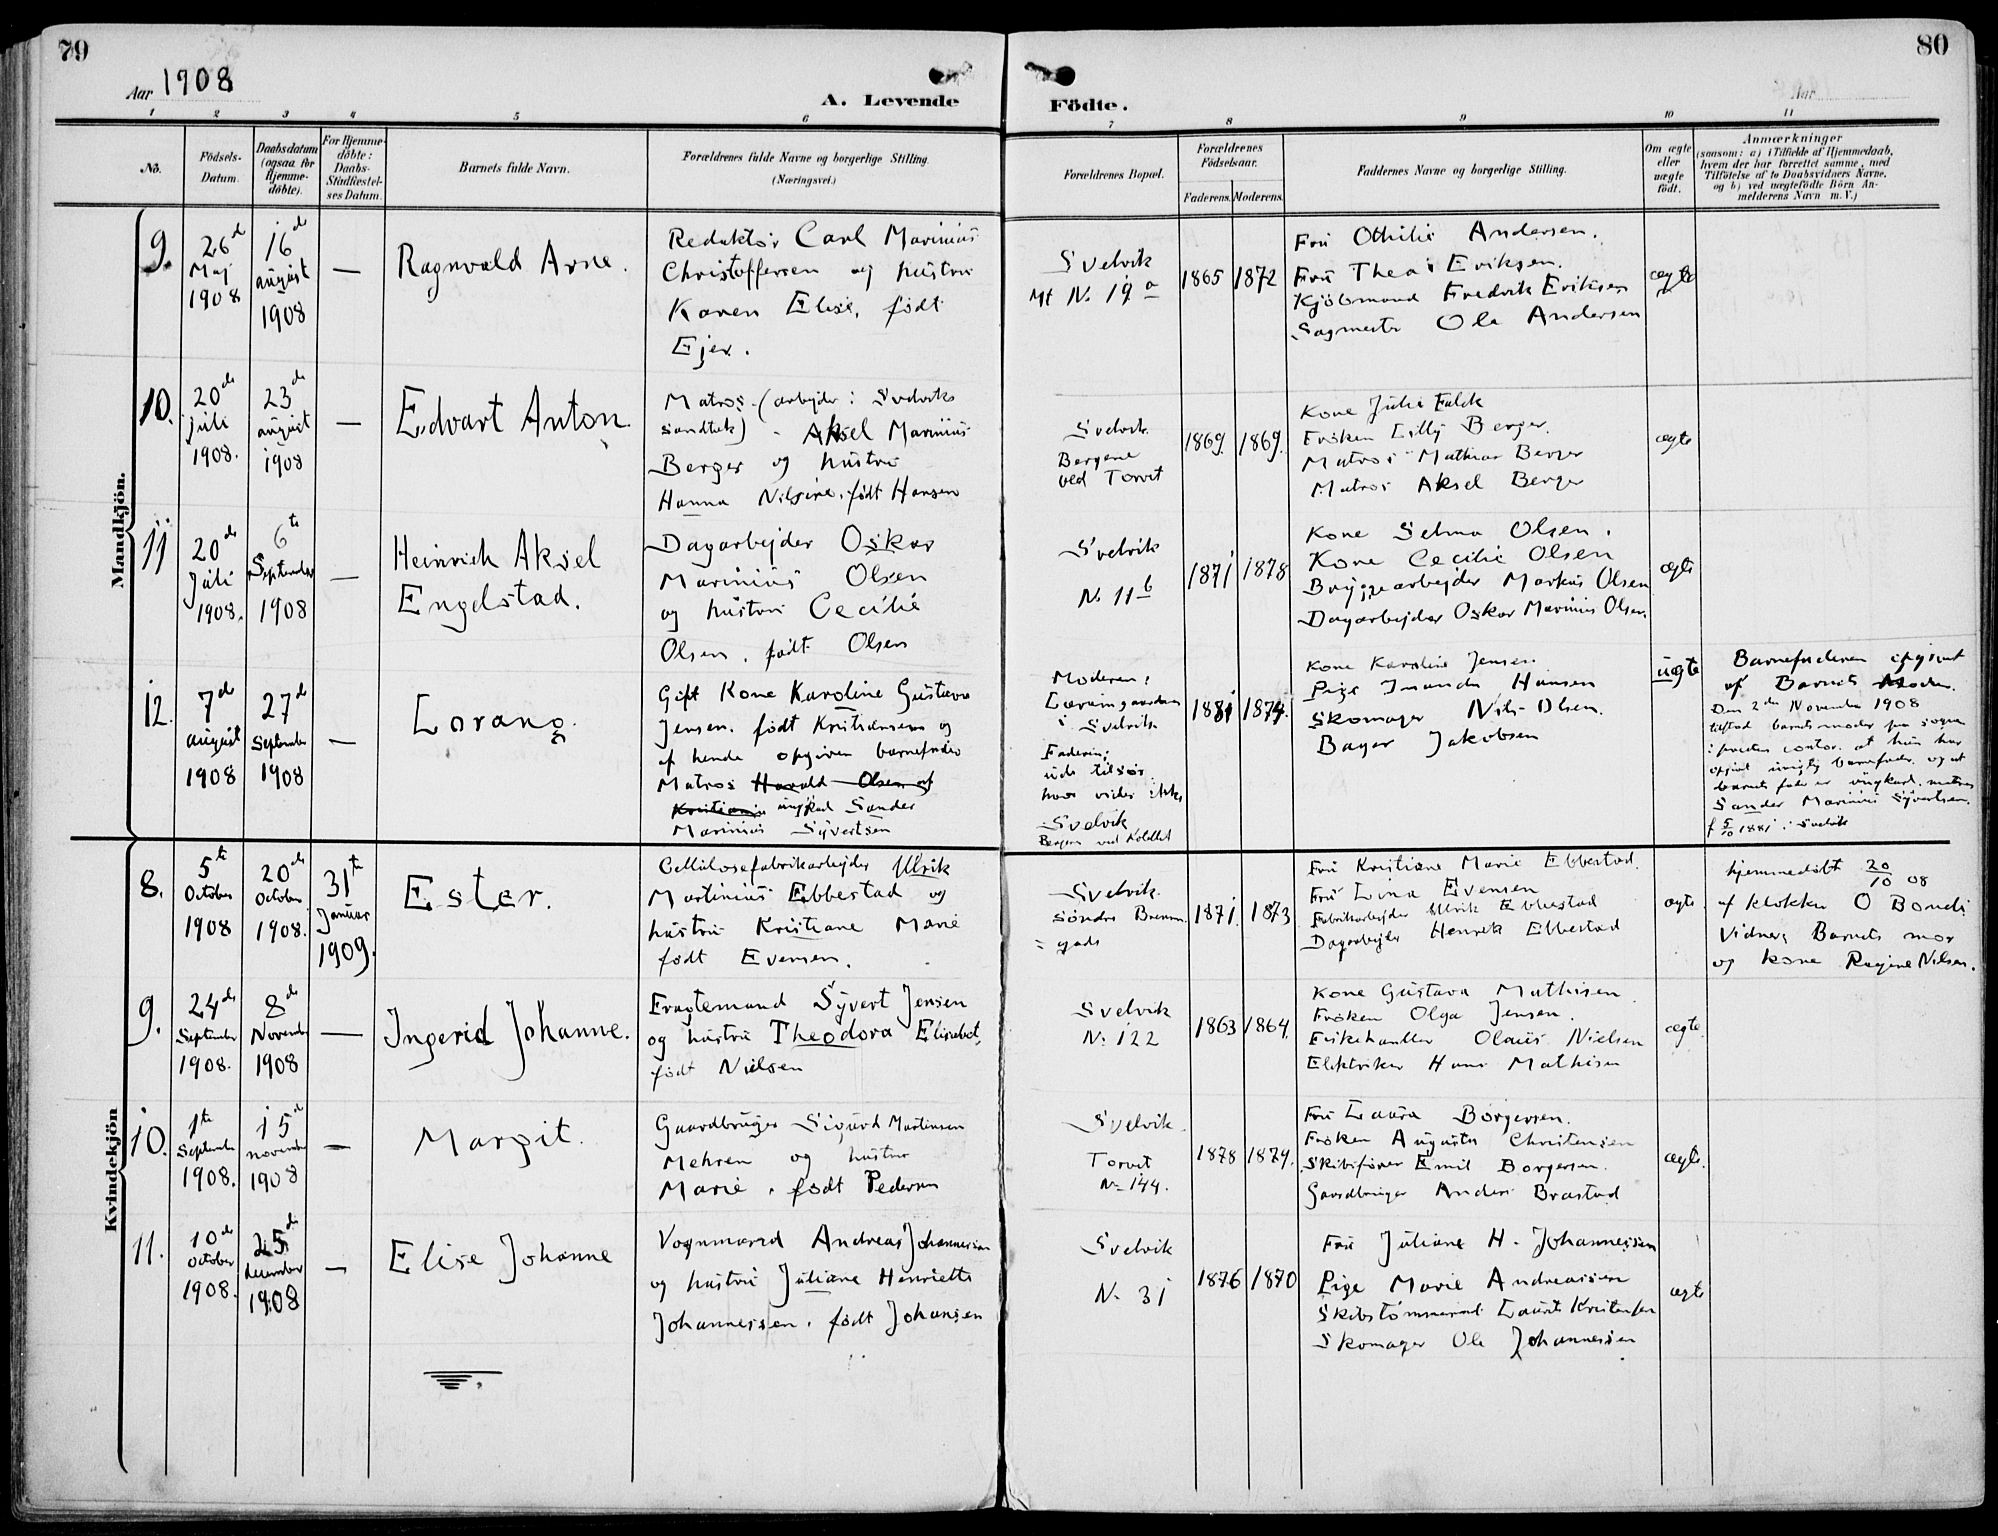 79
80
Aar 1908
A. Levende
Födte.
Aar
1
2
3
4
5
6
7
8
9
10
11
No.
Födsels-
Datum.
Daabsdatum
(ogsaa for
Hjemme-
döbte).
For Hjemme-
döbte:
Daabs-
Stadfæstel-
ses Datum.
Barnets fulde Navn.
Forældrenes fulde Navne og borgerlige Stilling.
(Næringsvei.)
Forældrenes Bopæl.
Forældrenes
Födselsaar.
Faderens.
Moderens.
Faddernes Navne og borgerlige Stilling.
Om ægte
eller
uægte
födt.
Anmærkninger
(saasom: a) i Tilfælde af Hjemmedaab,
hvem der har forrettet samme, med
Tilföielse af to Daabsvidners Navne,
og b) ved uægtefödte Börn An-
melderens Navn m. V.)
Mandkjön.
9.
26de
Maj
1908
16de
august
1908
—
Ragnvald Arne.
Redaktör Carl Marinius
Christoffersen og hustru
Karen Elise, født
Ejer.
Svelvik
Mt No 19a
1865
1872
Fru Othilie Andersen.
Fru Thea Eriksen.
Kjöbmand Fredrik Eriksen
Sagmester Ole Andersen
ægte
10.
20de
juli
1908.
23de
august
1908
—
Edvart Anton.
Matros (arbejder i Svelviks
sandtak) Aksel Marinius
Berger og hustru
Hanna Nilsine, født Hansen
Svelvik.
Bergene
ved Torvet
1869.
1869.
Kone Julie Falck
Fröken Lilly Berger.
Matros Mathias Berger
Matros Aksel Berger
ægte
11
20de
Juli
1908.
6te
September
1908
—
Heinrich Aksel
Engelstad.
Dagarbejder Oskar
Marinius Olsen
og hustru Cecilie
Olsen, født Olsen
Svelvik
No 11b
1871
1878
Kone Selma Olsen.
Kone Cecilie Olsen
Bryggearbejder Markus Olsen
Dagarbejder Oskar Marinius Olsen.
ægte
12.
7de
august
1908
27de
September
1908
—
Lorang.
Gift Kone Karoline Gustava
Jensen, født Kristiansen og
af hende opgiven barnefader
Matros Harald Olsen af
Kristiania ungkarl Sander
Marinius Syvertsen
Moderen:
i Svelvik
Faderen:
ude tilsjös
hvor vides ikke
Svelvik
1881
1874.
Kone Karoline Jensen
Pige Hansen
Skomager Nils Olsen.
Bager Jakobsen
uægte
Barnefaderen opgivet
af Barnets Moder.
Den 2den November 1908
barnets moder paa sogne-
contor, at hun har
barnefader, og at
barnets fader er ungkarl, matros
Sander Marinius Syvertsen,
f 5/10 1881 i Svelvik
Kvindekjön
8.
5te
October
1908
20de
October
1908.
31te
Januar
1909.
Ester.
Cellulosefabrikarbejder Ulrik
Martinius Ebbestad og
hustru Kristiane Marie
født Evensen.
Svelvik.
Söndre Brenn-
gade
1871.
1873
Fru Kristiane Marie Ebbestad.
Fru Lina Evensen
Fabrikarbejder Ulrik Ebbestad
Dagarbejder Henrik Ebbestad
ægte
hjemmedöbt 20/10 08
af klokker O Bonde
Vidner, Barnets mor
og kone Ragine Nilsen.
9.
24de
September
1908.
8de
November
1908
—
Ingerid Johanne.
Fragtemand Syvert Jensen
og hustru Theodora Elisabet,
født Nielsen
Svelvik
No 122
1863
1864.
Kone Gustava Mathisen
Fröken Olga Jensen.
Fiskehandler Olaus Nielsen
Elektriker Hans Mathisen
ægte
10.
1te
September
1908.
15de
november
1908
—
Margit.
Gaardbruger Sigurd Martinsen
Mehren og hustru
Marie, født Pedersen
Svelvik.
Torvet
No 144.
1878
1879.
Fru Laura Borgersen.
Fröken Augusta Christensen
Skibsförer Emil Borgersen.
Gaardbruger Anders Brastad
ægte.
11.
10de
October
1908.
25de
december
1908
—
Elise Johanne
Vognmand Andreas Johannessen
og hustru Juliane Henriette
Johannessen, født Johansen
Svelvik
No 31
1876
1870
Fru Juliane H. Johannessen
Pige Marie Andreassen
Skibstömmermand Laurits Kristensen
Skomager Ole Johannessen
ægte